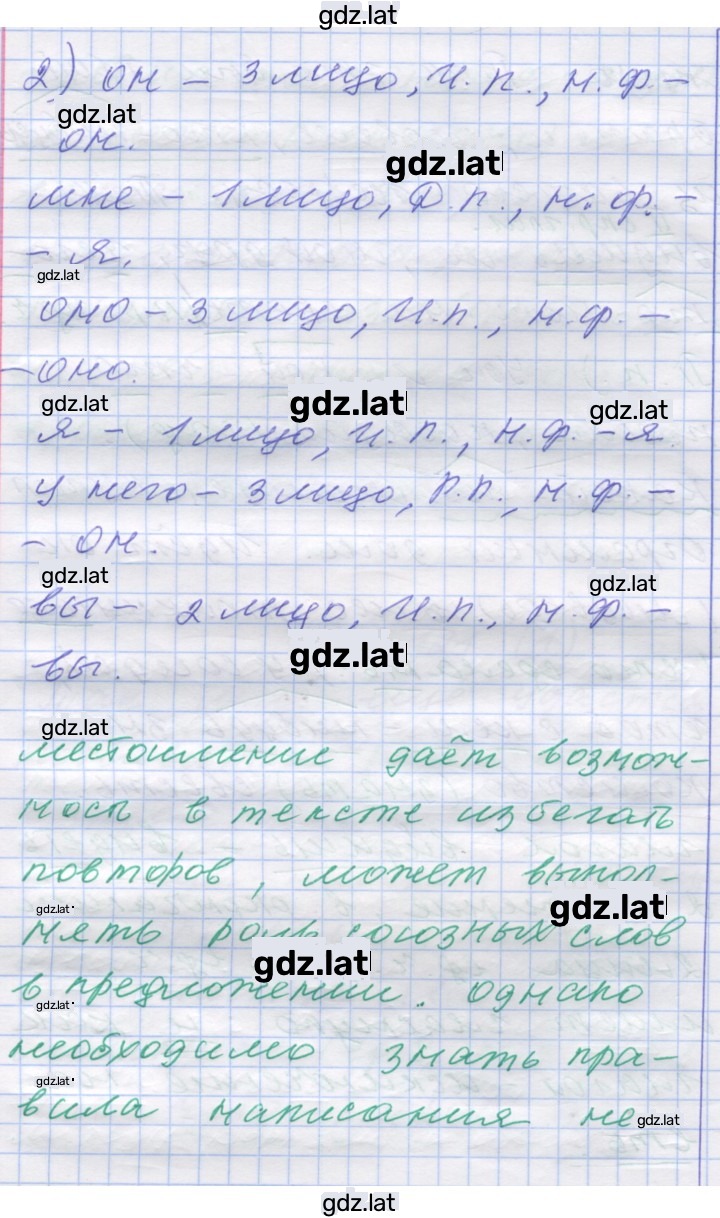 gdz.lat
2) он – 3 лицо, И.п., н.ф. –
gdz.lat
он.
gdz.lat
мне – 1 лицо, Д.п., н.ф. –
– я.
gdz.lat
оно – 3 лицо, И.п., н.ф. –
– оно.
gdz.lat gdz.lat gdz.lat
я – 1 лицо, И.п., н.ф. – я
у него – 3 лицо, Р.п., н.ф. –
– он.
gdz.lat gdz.lat
вы – 2 лицо, И.п., н.ф. –
gdz.lat
вы.
gdz.lat
местоимение даёт возмож-
ность в тексте избегать
повторов, может выпол-
gdz.lat gdz.lat
нять роль союзных слов
gdz.lat
в предложении. однако
gdz.lat
необходимо знать пра-
gdz.lat
вила написания не
gdz.lat
gdz.lat